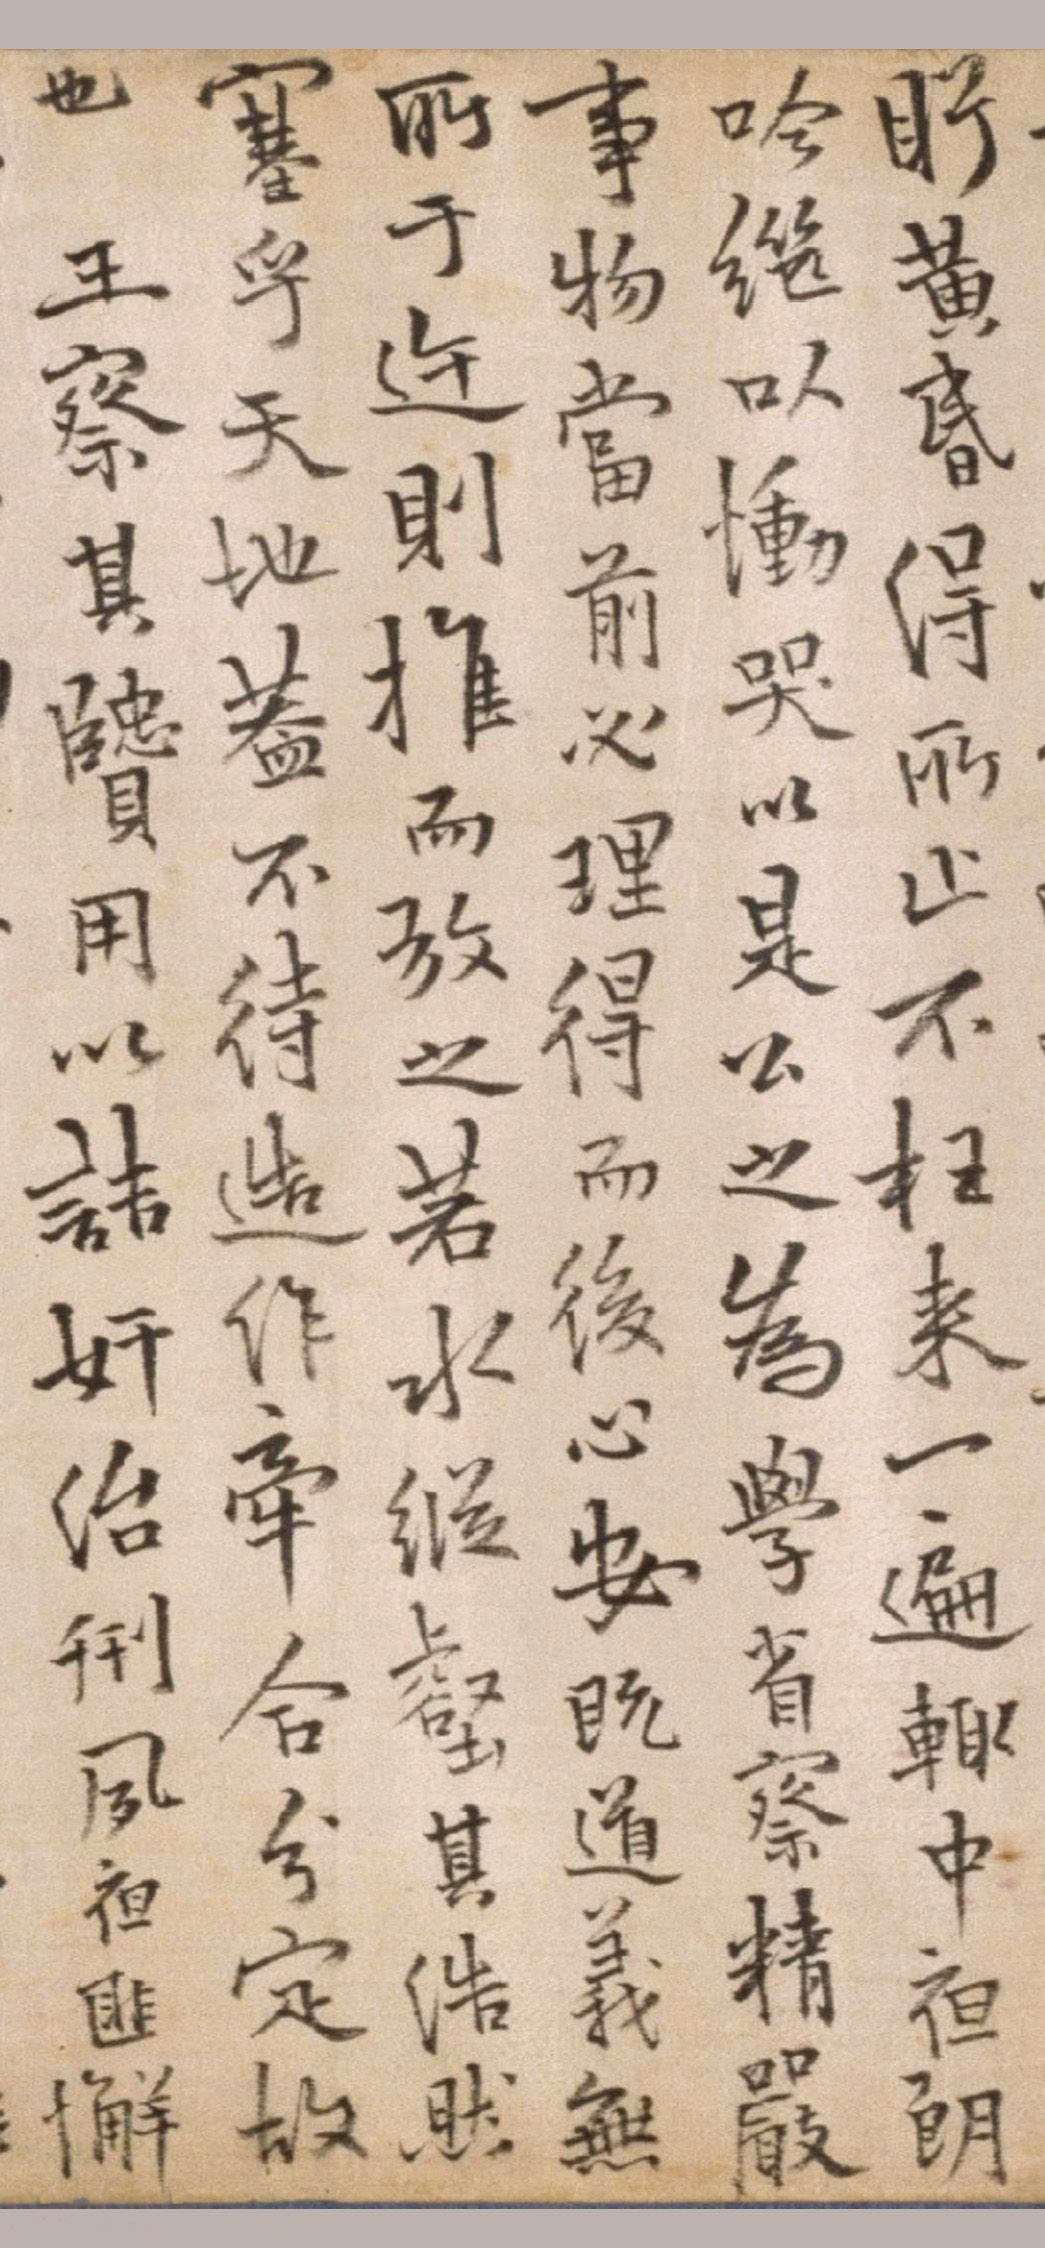 盱黃昏得所止不枉来一遍輙中夜朗
吟繼以慟哭以是公之為學省察精嚴
事物當前必理得而後心安既道義無
所于迕則推而放之若水縱壑其浩然
塞乎天地蓋不待造作牽合兮定故
也王察其贒用以詰奸治刑夙夜匪懈